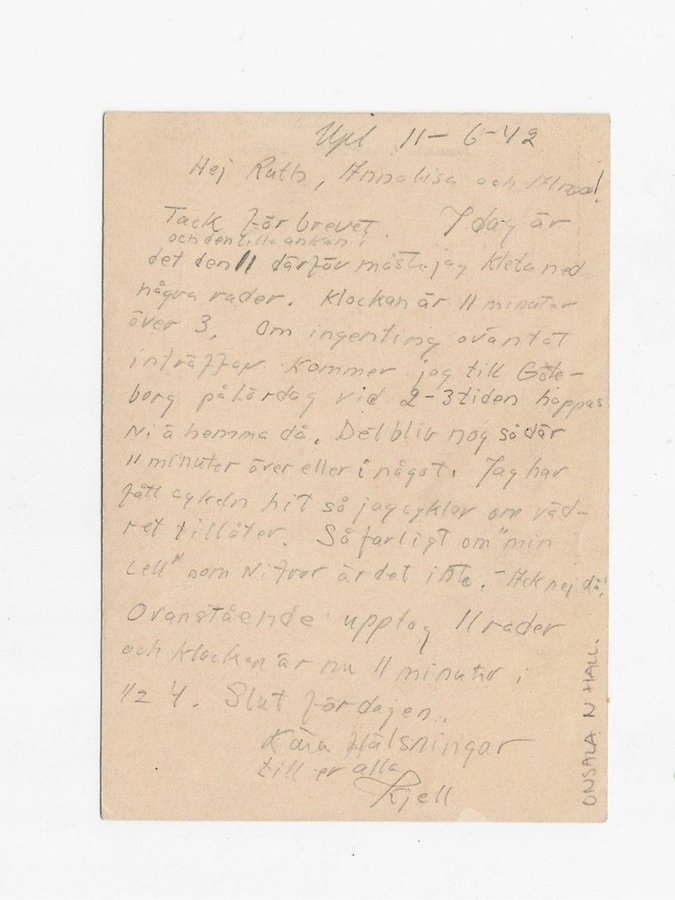 Upl 11-6-42
Hej Ruth, Annalisa och
Tack för brevet. I dag är
och den lilla ankan!
det den 11 därför måste jag kleta ned
några rader. Klockan är 11 minuter
över 3. Om ingenting oväntat
inträffar kommer jag till Göte-
borg på lördag vid 2-3 tiden hoppas
Ni ä hemma då. Det blir nog så där
11 minuter över eller i något. Jag har
fått cykeln hit så jag cyklar om väd-
ret tillåter. Så farligt om "min
cell" som Ni tror är det inte. - Ack nej då!
Ovanstående upptog 11 rader
och klockan är nu 11 minuter i
1/2 4. Slut för dagen.
Kära Hälsningar
till er alla
Kjell
ONSALA N HALL.